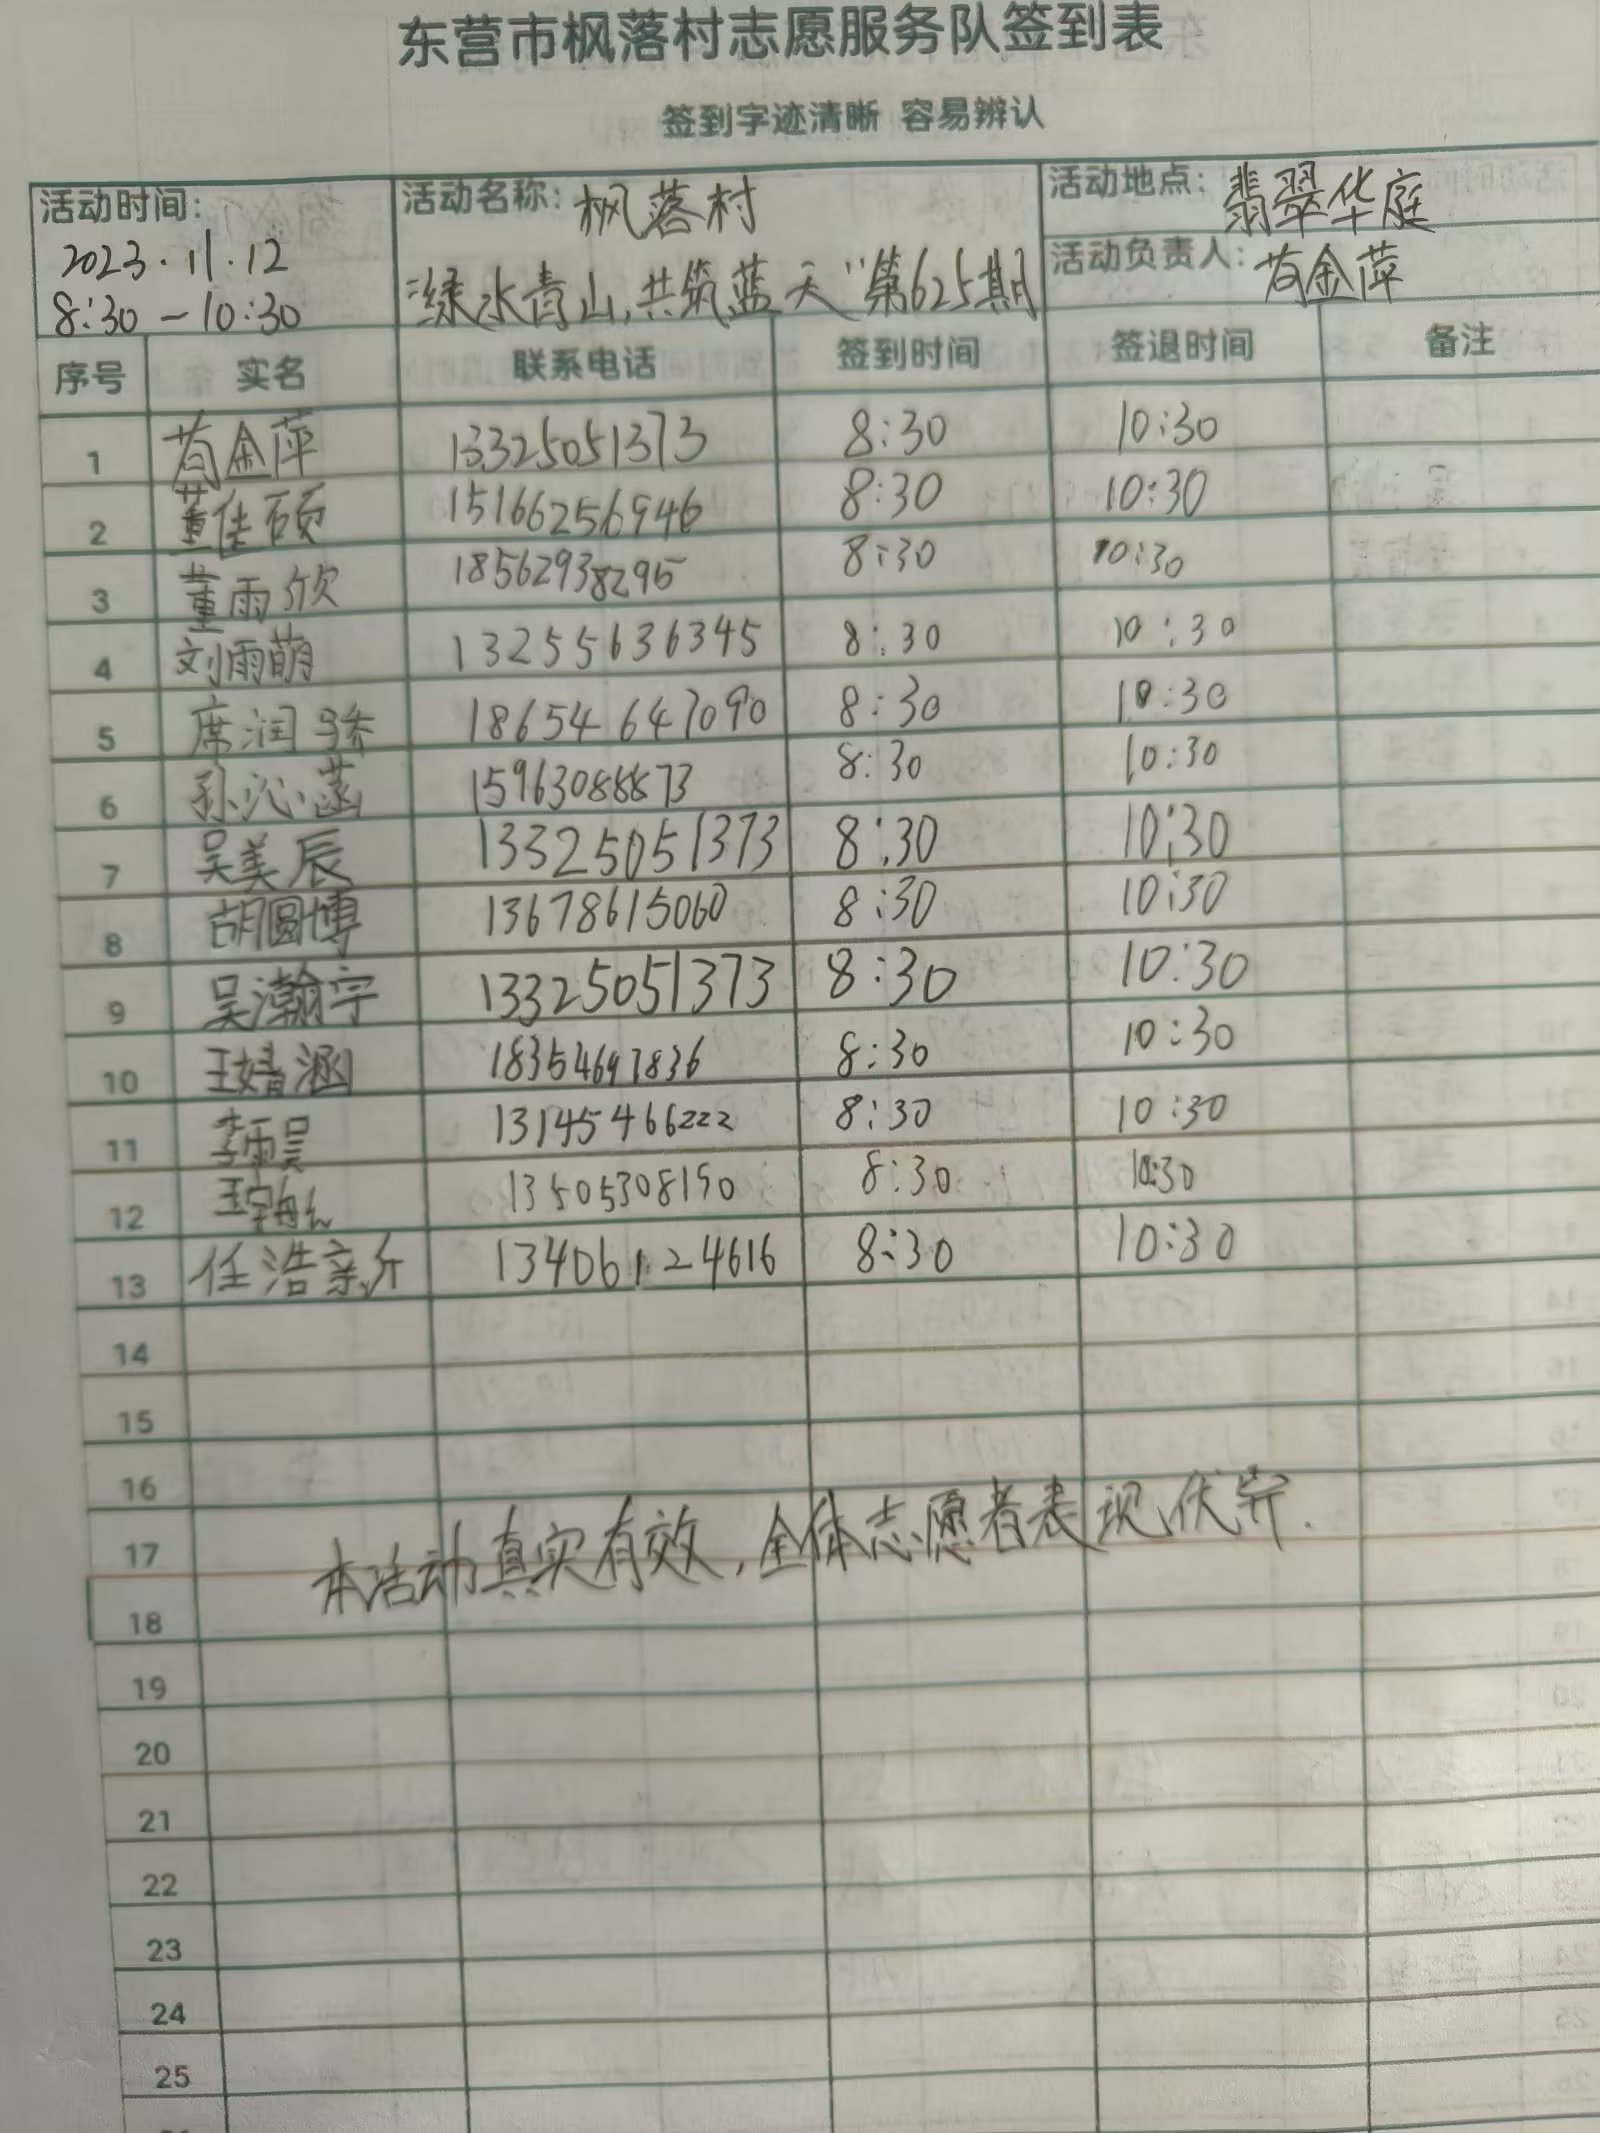 东营市枫落村志愿服务队签到表
签到字迹清晰 容易辨认
活动时间: 2023.11.12 8:30-10:30
活动名称: 枫落村 "绿水青山,共筑蓝天"第625期
活动地点: 翡翠华庭
活动负责人: 苟金萍
序号 实名 联系电话 签到时间 签退时间 备注
1 苟金萍 13325051373 8:30 10:30
2 董佳硕 15166256946 8:30 10:30
3 董雨欣 18562938295 8:30 10:30
4 刘雨萌 13255636345 8:30 10:30
5 席润骄 18654647090 8:30 10:30
6 孙沁菡 15963088873 8:30 10:30
7 吴美辰 13325051373 8:30 10:30
8 胡圆博 13678615060 8:30 10:30
9 吴瀚宇 13325051373 8:30 10:30
10 王婧涵 18354697836 8:30 10:30
11 李雨昊 13145466222 8:30 10:30
12 13505308190 8:30 10:30
13 任浩 13406124616 8:30 10:30
14
15
16
17
本活动真实有效,全体志愿者表现优异.
18
19
20
21
22
23
24
25